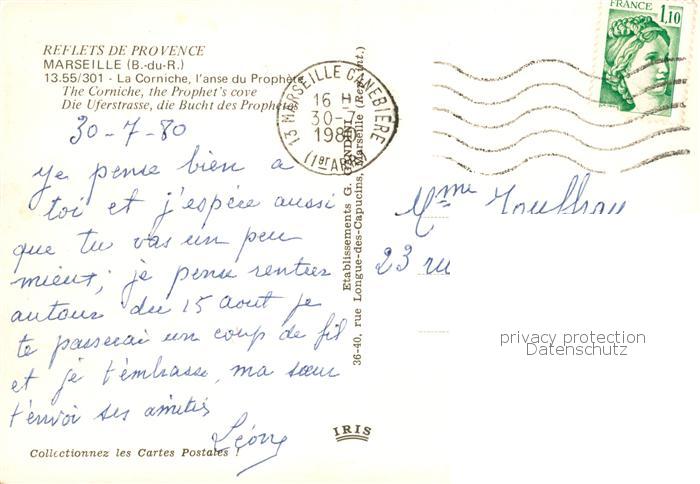 REFLETS DE PROVENCE
MARSEILLE (B.-du-R.)
13.55/301 - La Corniche, l'anse du Prophète
The Corniche, the Prophet's cove
Die Uferstrasse, die Bucht des Prophète
30-7-80
Je pense bien a
toi et j'espère aussi
que tu vas un peu
mieux, je pense rentrer
autour du 15 aout je
te passerai un coup de fil
et je t'embrasse, ma sœur
t'envoi ses amitiés
Léone
Collectionnez les Cartes Postales !
IRIS
Etablissements G. GANDINI
36-40, rue Longue-des-Capucins, Marseille (Rep. int.)
13 MARSEILLE CANEBIERE
16 H
30-7
1980
(1er ARR)
FRANCE
1,10
Mme
23 ru
privacy protection
Datenschutz